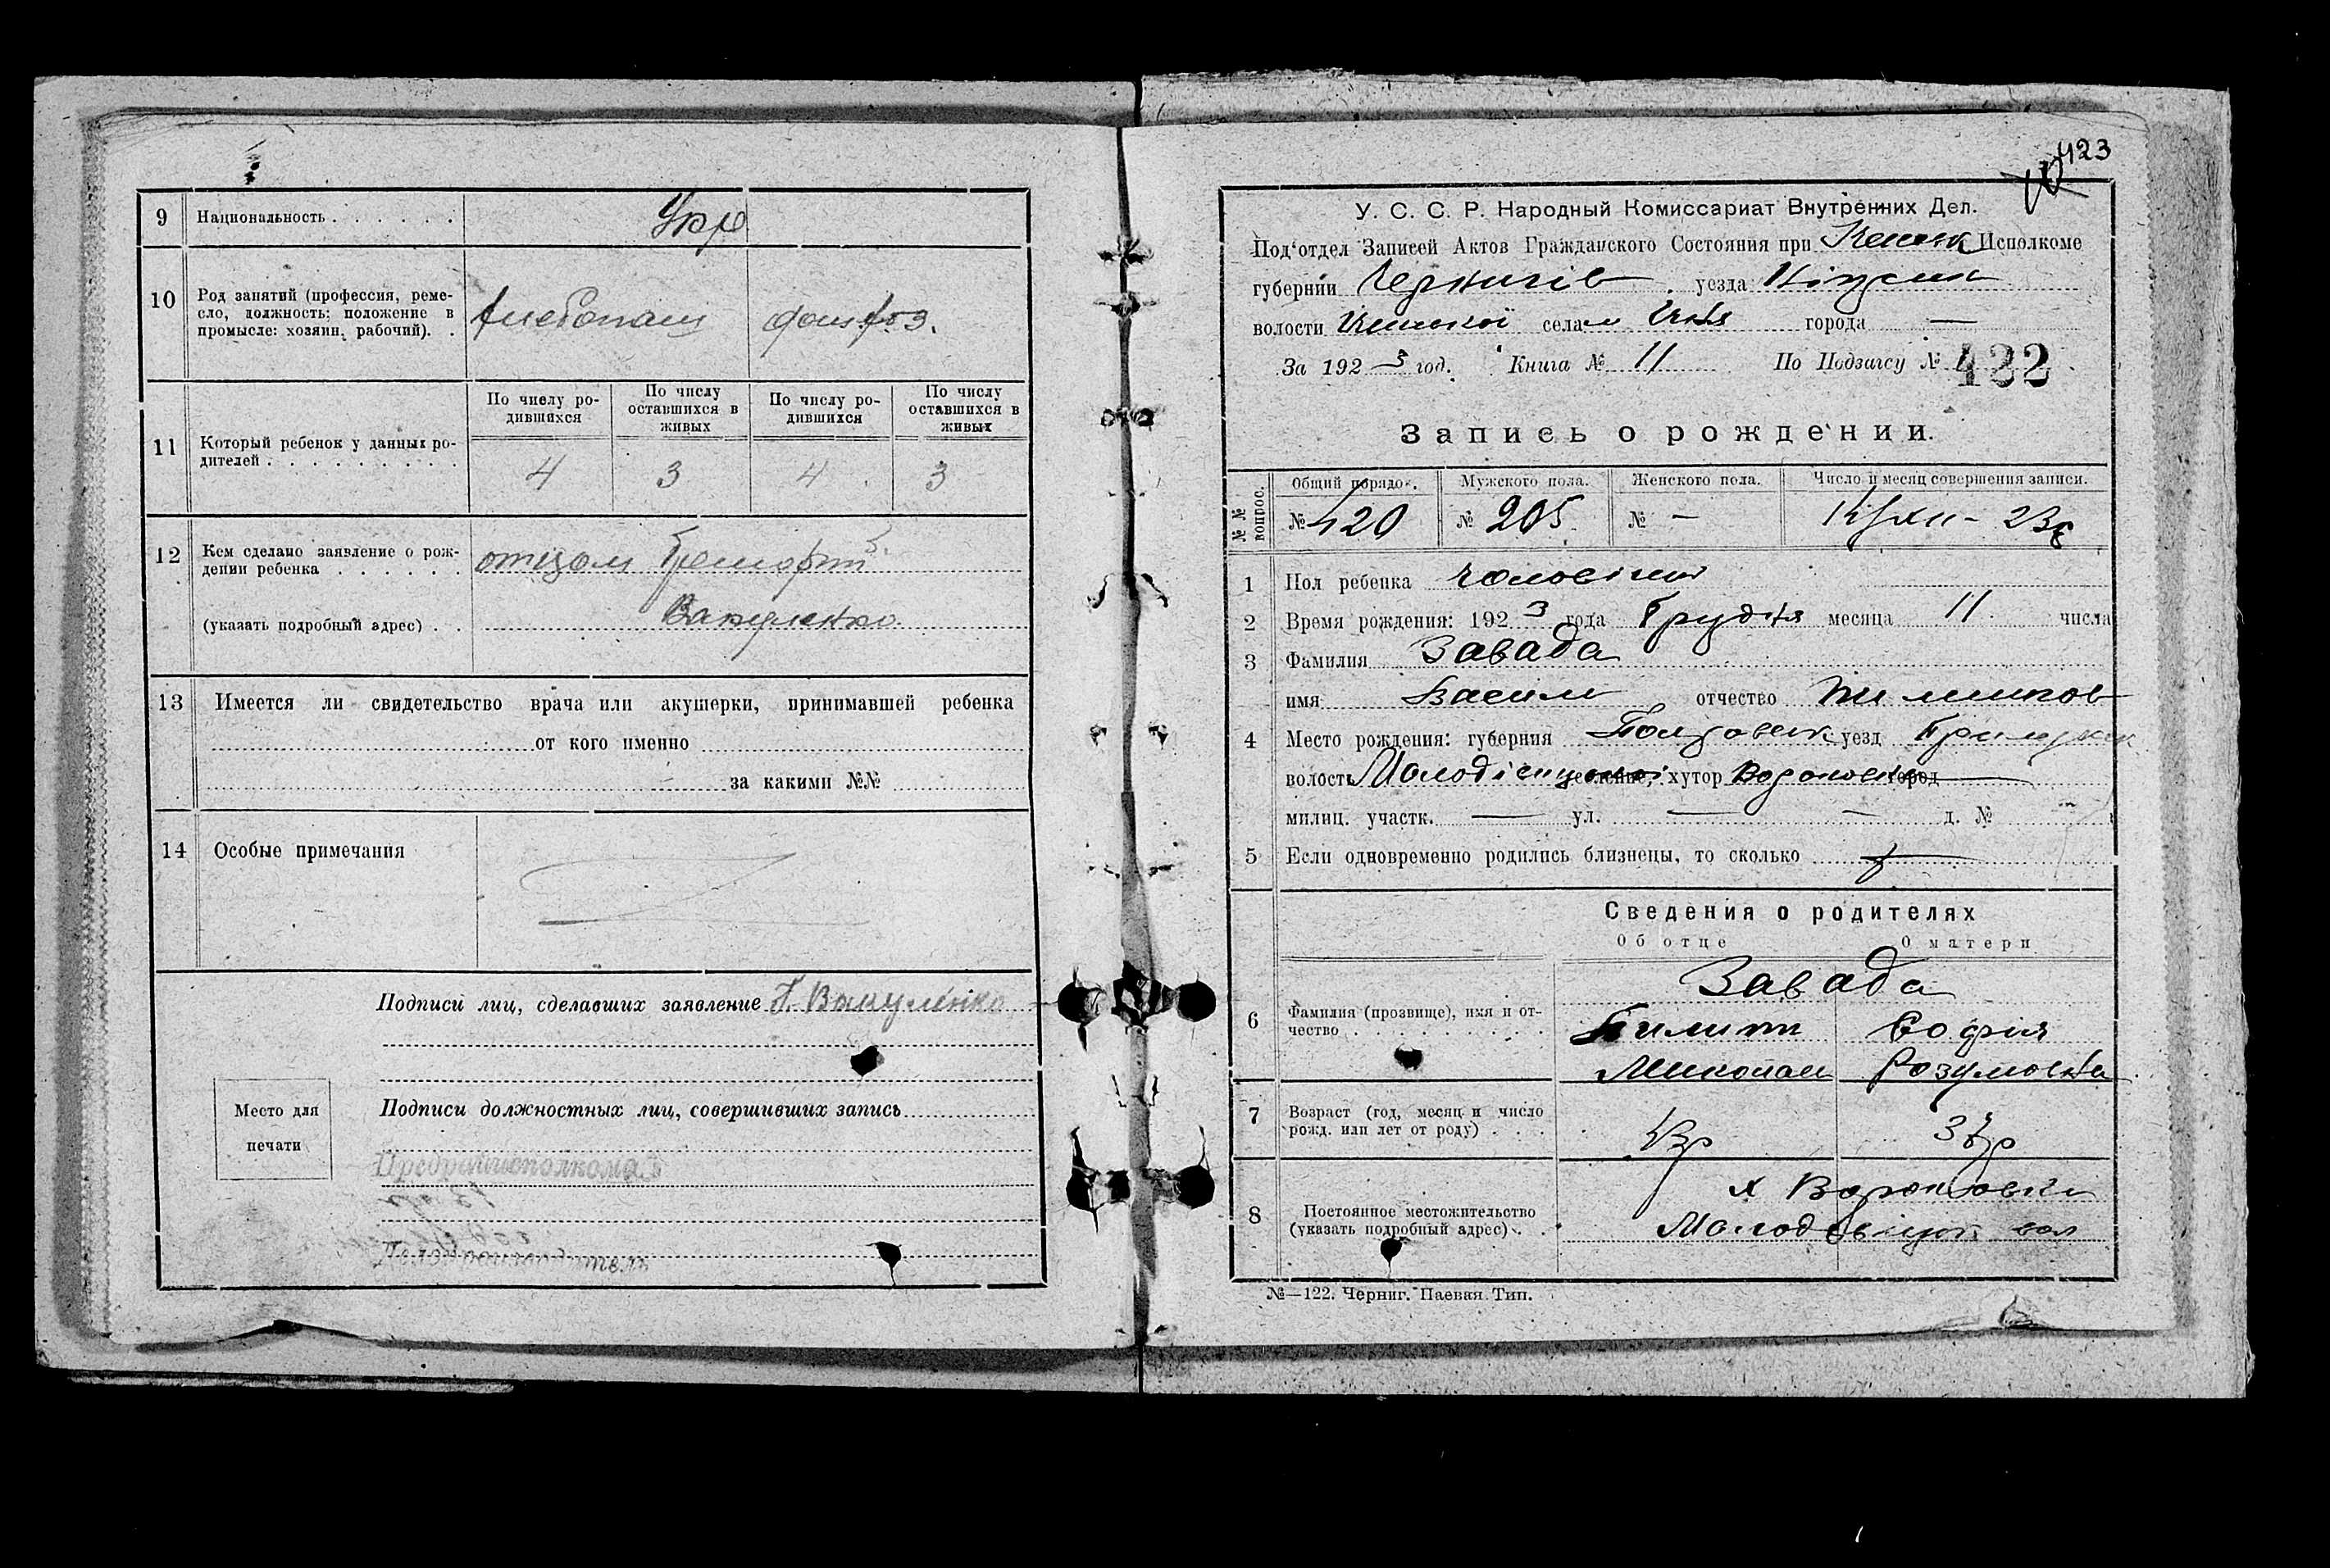 9 Национальность . . . . . . Укр
10 Род занятий (профессия, реме-
сло, должность: положение в
промысле: хозяин, рабочий). .
хлебопаш дом хоз.
11 Который ребенок у данных ро-
дителей . . . . . . . . .
По числу ро-
дившихся
По числу
оставшихся в
живых
По числу ро-
дившихся
По числу
оставшихся в
живых
4 3 4 3
12 Кем сделано заявление о рож-
дении ребенка . . . . . . отцом
(указать подробный адрес) . . Вакуленко
13 Имеется ли свидетельство врача или акушерки, принимавшей ребенка
от кого именно
за какими №№
14 Особые примечания
Подписи лиц, сделавших заявление Г. Вакуленко
Место для
печати
Подписи должностных лиц, совершивших запись
Предрайисполкома
Делопроизводитель
423
У. С. С. Р. Народный Комиссариат Внутренних Дел.
Под'отдел Записей Актов Гражданского Состояния при Исполкоме
губернии Чернигів уезда Ніжин
волости села м Ічня города —
За 1923 год. Книга № 11 По Подзагсу № 422
Запись о рождении.
№№ вопрос.
Общий порядо. Мужского пола. Женского пола. Число и месяц совершения записи.
№ 420 № 205 № —
1 Пол ребенка чоловічий
2 Время рождения: 1923 года Грудня месяца 11 числа
3 Фамилия Завада
имя Василь отчество Пилипов
4 Место рождения: губерния Полтавск уезд Прилуцк
волость селение, хутор Вороновка город —
милиц. участк. — ул. — — д. №
5 Если одновременно родились близнецы, то сколько
Сведения о родителях
Об отце О матери
6 Фамилия (прозвище), имя и от-
чество . . . . . . . . . .
Завада
Пилип Софія
Миколаев Розумовна
7 Возраст (год, месяц и число
рожд. или лет от роду) . . . .
8 Постоянное местожительство
(указать подробный адрес) . .
х Вороновки
вол
№—122. Черниг. Паевая Тип.